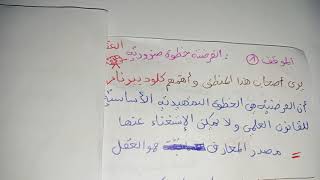 الموقف ① : الفرضية خطوة ضرورية
يرى أصحاب هذا المنطق وأهمهم كلود بيرنار
أن الفرضية هي الخطوة التمهيدية الأساسية
للقانون العلمي ولا يمكن الإستغناء عنها
= مصدر المعارف هو العقل